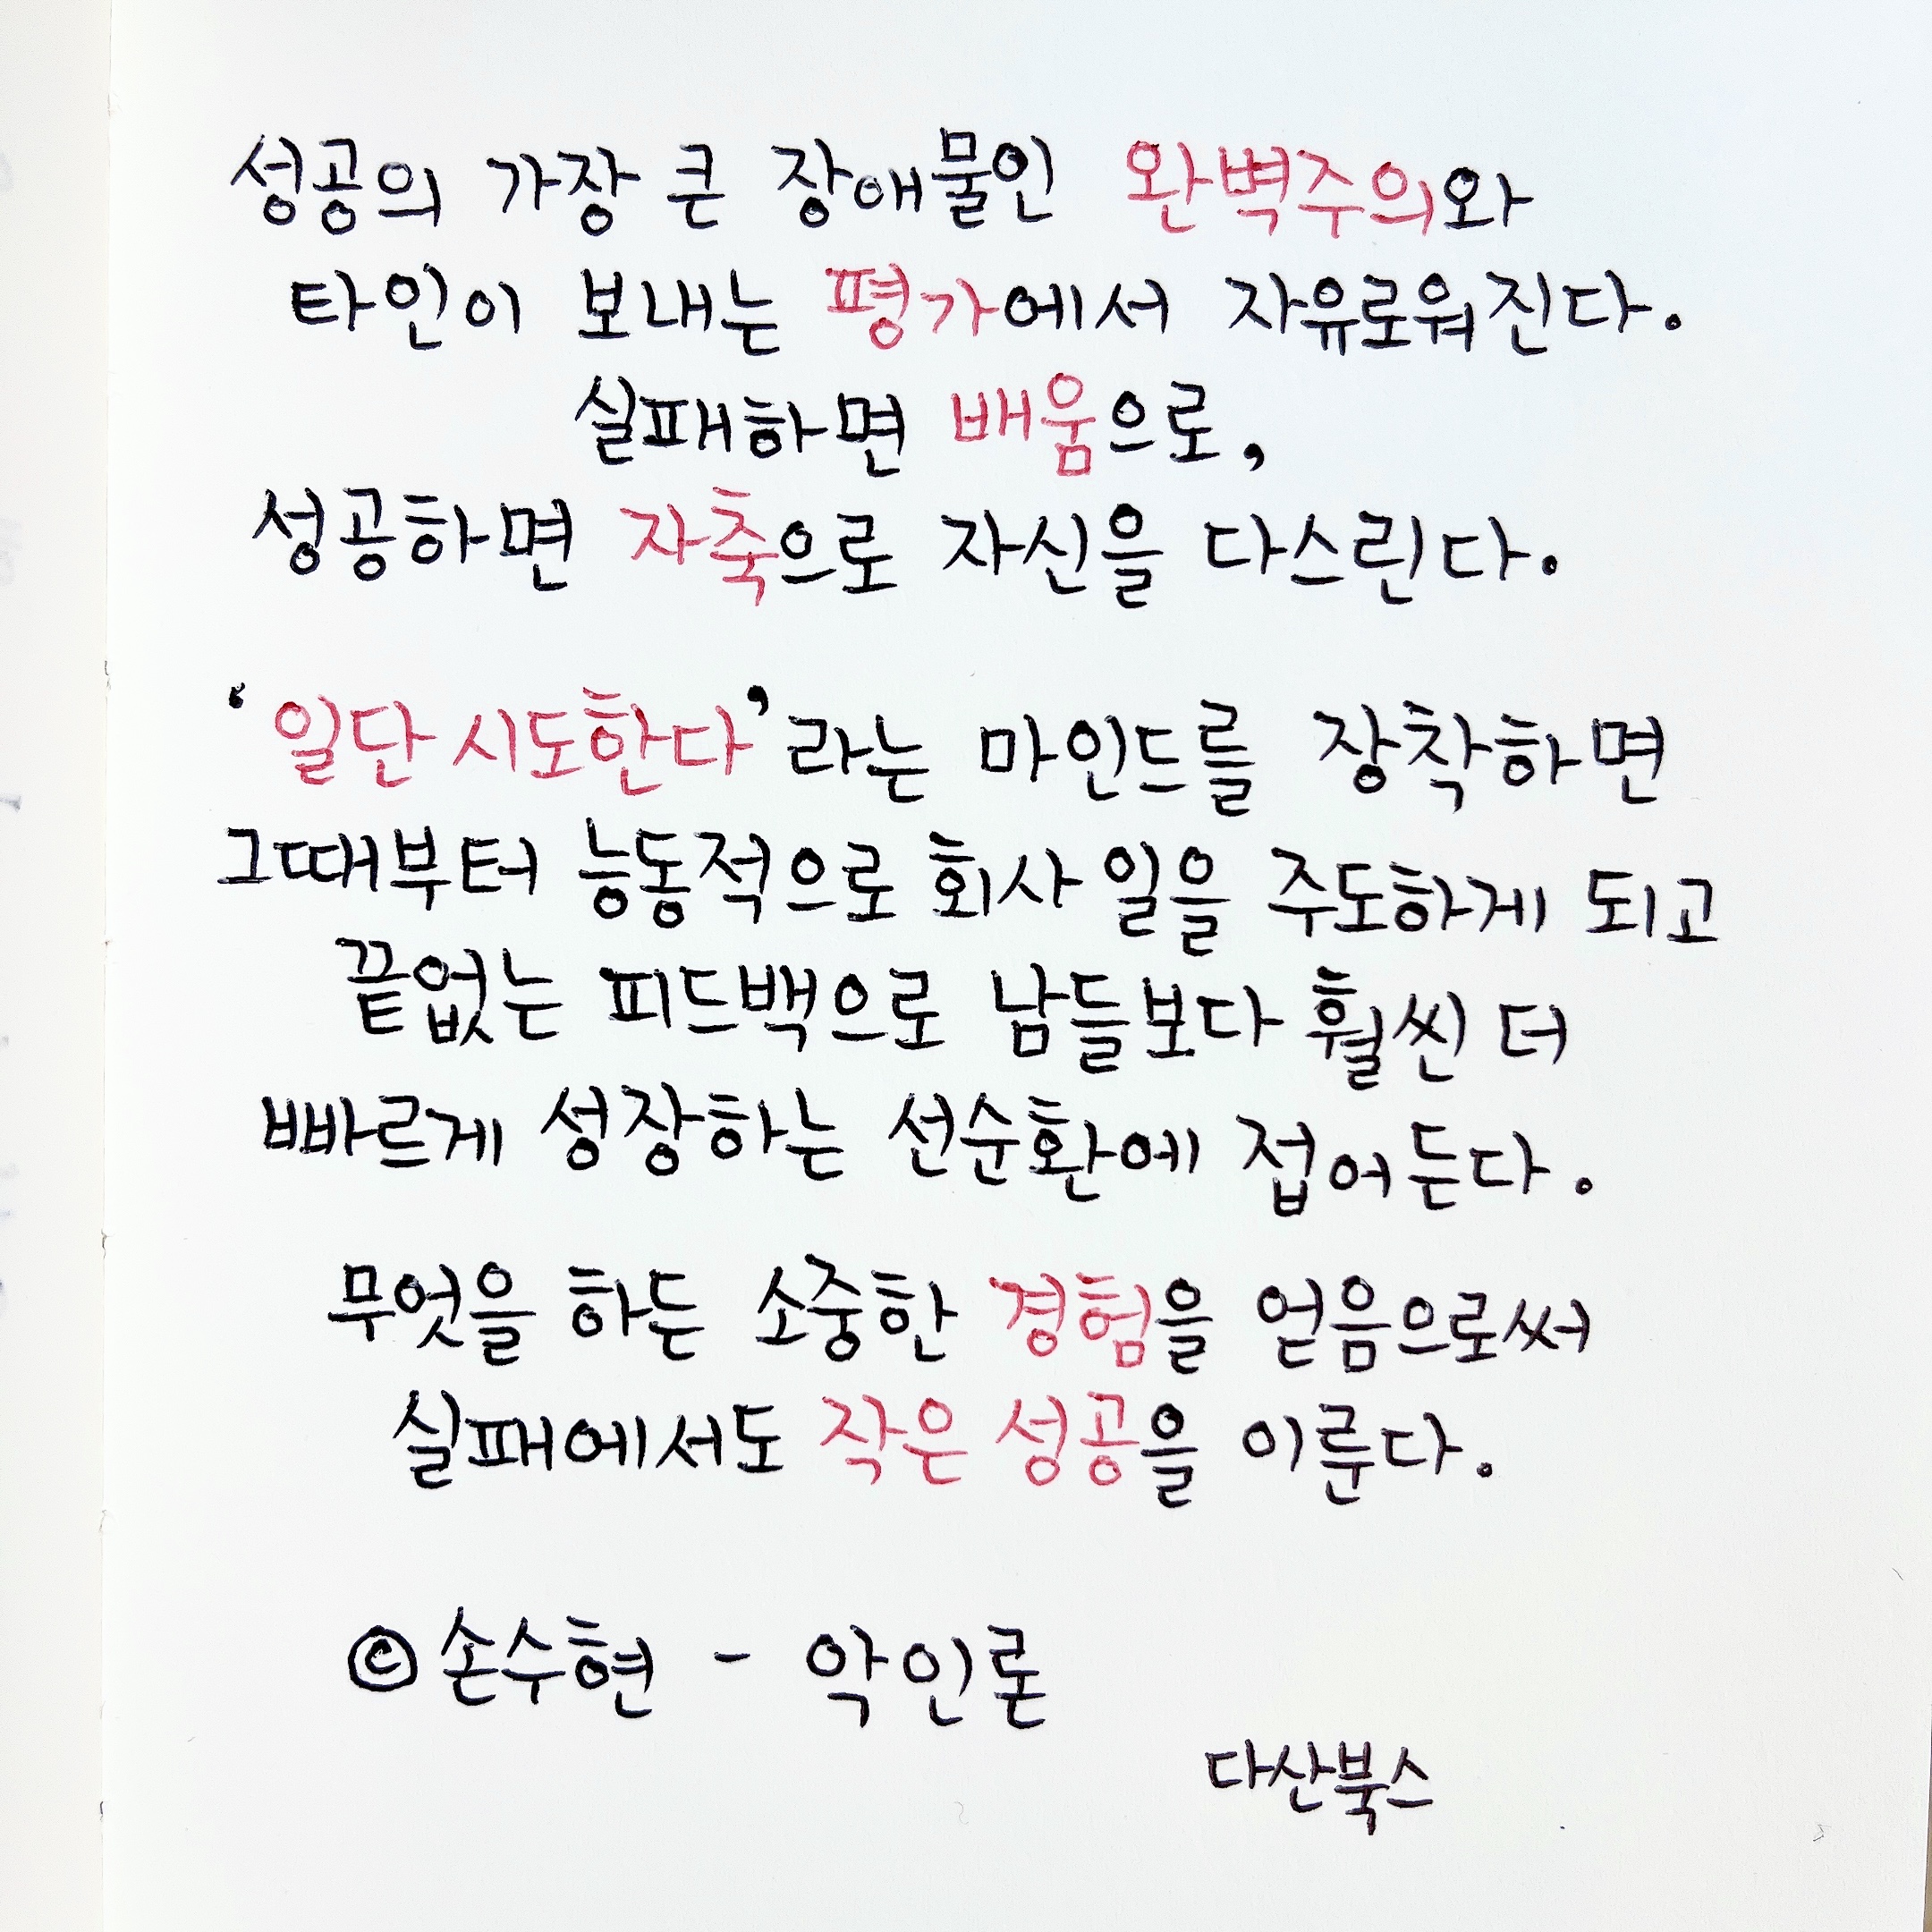 성공의 가장 큰 장애물인 완벽주의와
타인이 보내는 평가에서 자유로워진다.
실패하면 배움으로,
성공하면 자축으로 자신을 다스린다.
‘일단 시도한다’라는 마인드를 장착하면
그때부터 능동적으로 회사 일을 주도하게 되고
끝없는 피드백으로 남들보다 훨씬 더
빠르게 성장하는 선순환에 접어든다.
무엇을 하든 소중한 경험을 얻음으로써
실패에서도 작은 성공을 이룬다.
© 손수현 - 악인론
다산북스